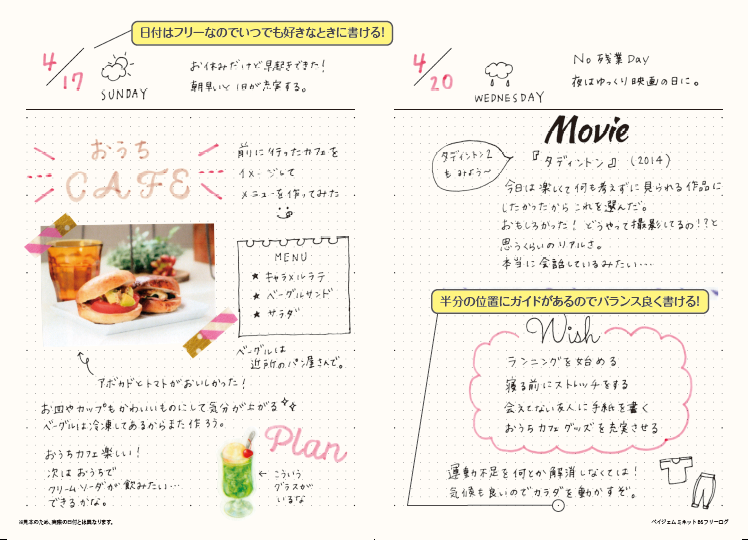 日付はフリーなのでいつでも好きなときに書ける!
4/17
SUNDAY
お休みだけど早起きできた!
朝早いと1日が充実する。
おうち
CAFE
前に行ったカフェを
イメージして
メニューを作ってみた
MENU
★ キャラメルラテ
★ ベーグルサンド
★ サラダ
ベーグルは
近所のパン屋さんで。
アボカドとトマトがおいしかった!
お皿やカップもかわいいものにして気分が上がる
ベーグルは冷凍してあるからまた作ろう。
おうちカフェ楽しい!
次はおうちで
クリームソーダが飲みたい…
できるかな。
Plan
←こういう
グラスが
いるな
※見本のため、実際の日付とは異なります。
4/20
WEDNESDAY
No 残業 Day
夜はゆっくり映画の日に。
Movie
タディントン2
も みよう〜
『タディントン』(2014)
今日は楽しくて何も考えずに見られる作品に
したかったからこれを選んだ。
おもしろかった! どうやって撮影してるの!?と
思うくらいのリアルさ。
本当に会話しているみたい…
半分の位置にガイドがあるのでバランス良く書ける!
Wish
ランニングを始める
寝る前にストレッチをする
会えてない友人に手紙を書く
おうちカフェグッズを充実させる
運動不足を何とか解消しなくては!
気候も良いのでカラダを動かすぞ。
ペイジェムミネット B6フリーログ